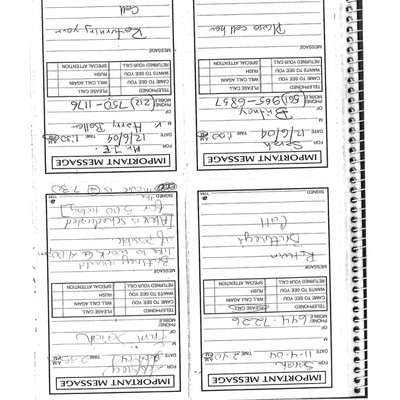 IMPORTANT MESSAGE
Sarah
DATE 11-4-04 TIME 2:40 AM PM
M
PHONE/
MOBILE 644-7226
TELEPHONED PLEASE CALL
CAME TO SEE YOU WILL CALL AGAIN
WANTS TO SEE YOU RUSH
RETURNED YOUR CALL SPECIAL ATTENTION
MESSAGE
Return
Call
SIGNED
IMPORTANT MESSAGE
Jeffrey
DATE TIME AM PM
M
From Sarah
PHONE/
MOBILE
TELEPHONED PLEASE CALL
CAME TO SEE YOU WILL CALL AGAIN
WANTS TO SEE YOU RUSH
RETURNED YOUR CALL SPECIAL ATTENTION
MESSAGE
would
like to work @ 4:00pm
if possible
[Alex is scheduled
for 5:00 today]
Movie is @ 7:30
SIGNED
IMPORTANT MESSAGE
Sarah
DATE 12/6/04 TIME 1:00 AM PM
M
Britney
PHONE/
MOBILE (561) 965-6857
TELEPHONED PLEASE CALL
CAME TO SEE YOU WILL CALL AGAIN
WANTS TO SEE YOU RUSH
RETURNED YOUR CALL SPECIAL ATTENTION
MESSAGE
Please call her
IMPORTANT MESSAGE
Mr. J.E.
DATE 12/6/04 TIME 1:30 AM PM
M Harry Beller
PHONE/
MOBILE (212) 750-1176
TELEPHONED PLEASE CALL
CAME TO SEE YOU WILL CALL AGAIN
WANTS TO SEE YOU RUSH
RETURNED YOUR CALL SPECIAL ATTENTION
MESSAGE
Returning your
Call